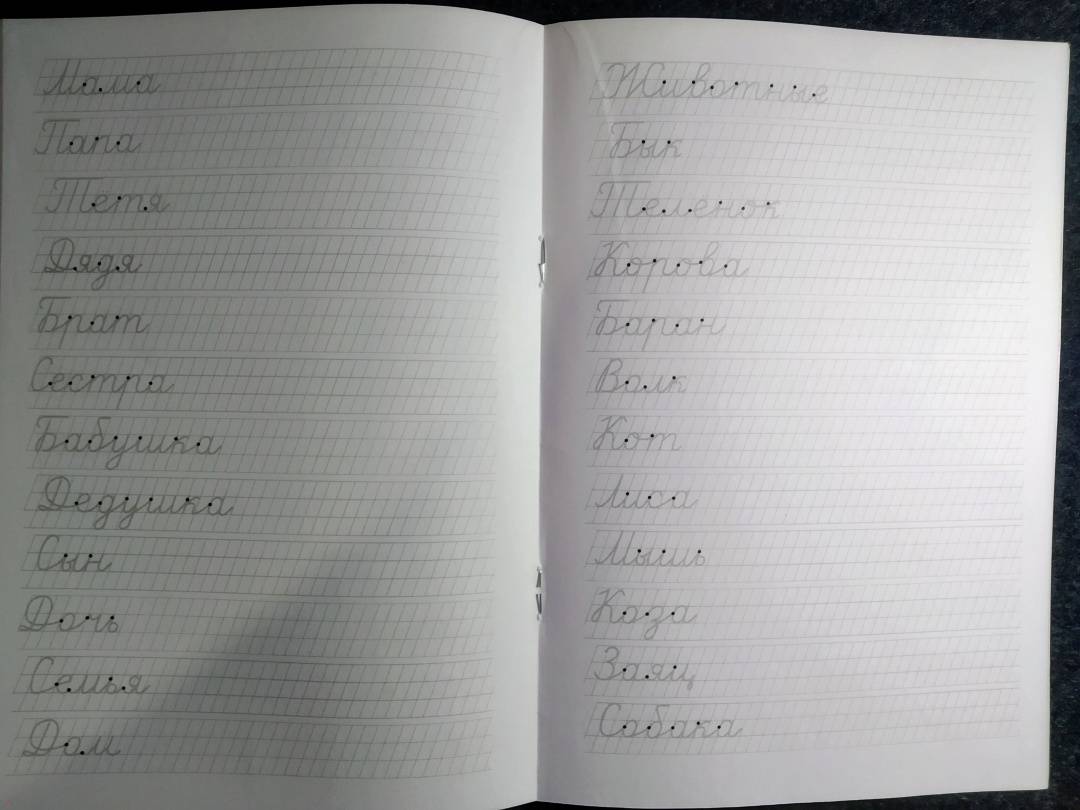 Мама
Папа
Тетя
Дядя
Брат
Сестра
Бабушка
Дедушка
Сын
Дочь
Семья
Дом
Животные
Бык
Теленок
Корова
Баран
Волк
Кот
Лиса
Мышь
Коза
Заяц
Собака